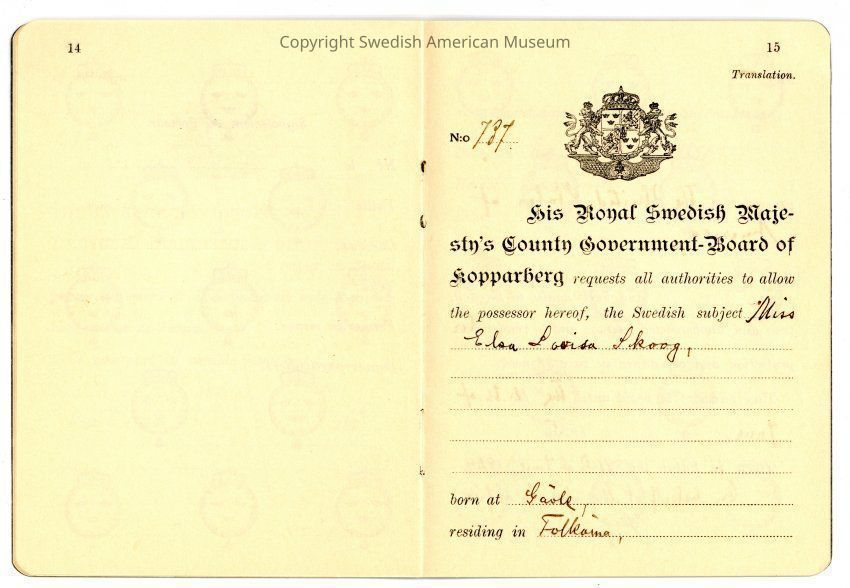 Copyright Swedish American Museum
14
15
Translation.
N:o 737.
His Royal Swedish Maje-
sty's County Government-Board of
Kopparberg requests all authorities to allow
the possessor hereof, the Swedish subject Miss
Elsa Lovisa Skoog,
born at Gävle,
residing in Folkärna,